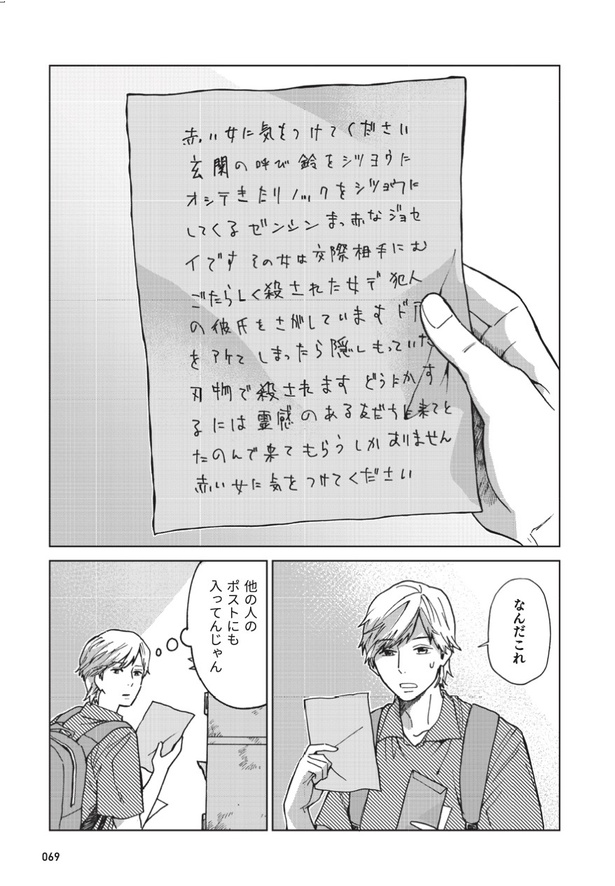 赤い女に気をつけてください
玄関の呼び鈴をシツヨウに
オシテきたりノックをシツヨウに
してくるゼンシンまっ赤なジョセ
イです その女は交際相手にむ
ごたらしく殺された女デ犯人
の彼氏をさがしています ドア
をアケてしまったら隠しもっていた
刃物で殺されます どうにかす
るには霊感のある友だちに来てと
たのんで来てもらうしかありません
赤い女に気をつけてください
なんだこれ
他の人の
ポストにも
入ってんじゃん
069